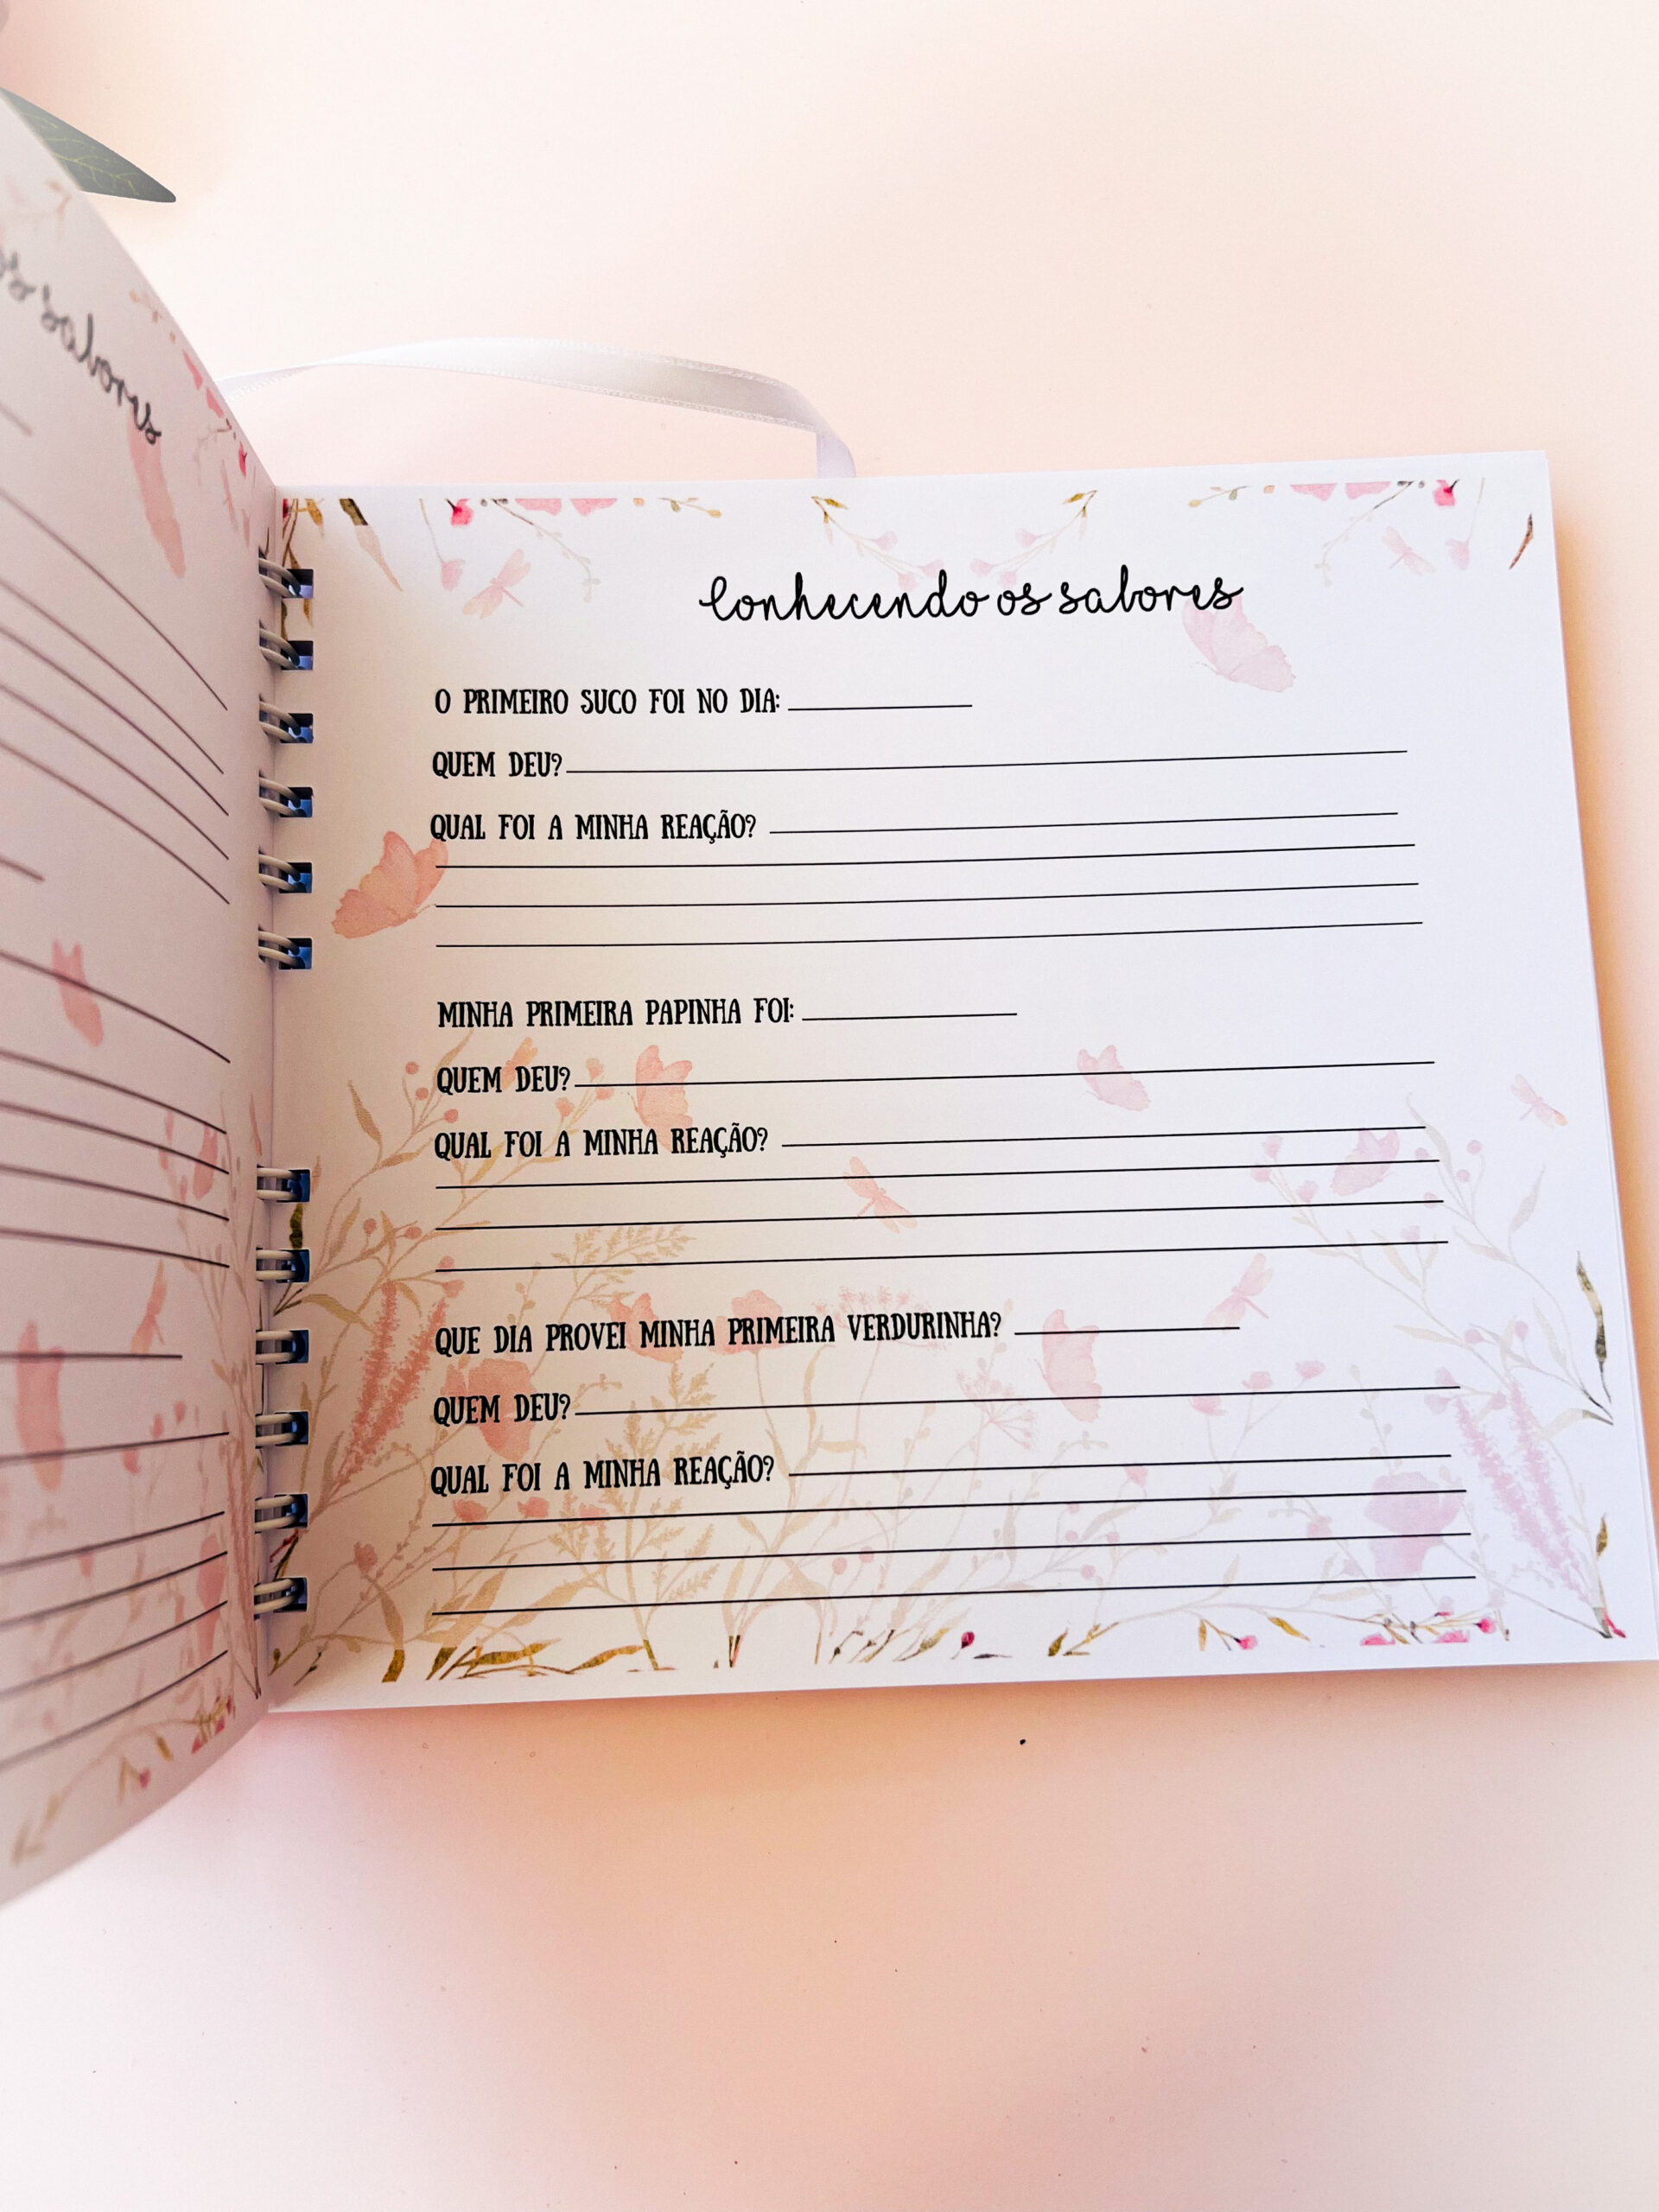 os sabores
Conhecendo os sabores
O PRIMEIRO SUCO FOI NO DIA:
QUEM DEU?
QUAL FOI A MINHA REAÇÃO?
MINHA PRIMEIRA PAPINHA FOI:
QUEM DEU?
QUAL FOI A MINHA REAÇÃO?
QUE DIA PROVEI MINHA PRIMEIRA VERDURINHA?
QUEM DEU?
QUAL FOI A MINHA REAÇÃO?